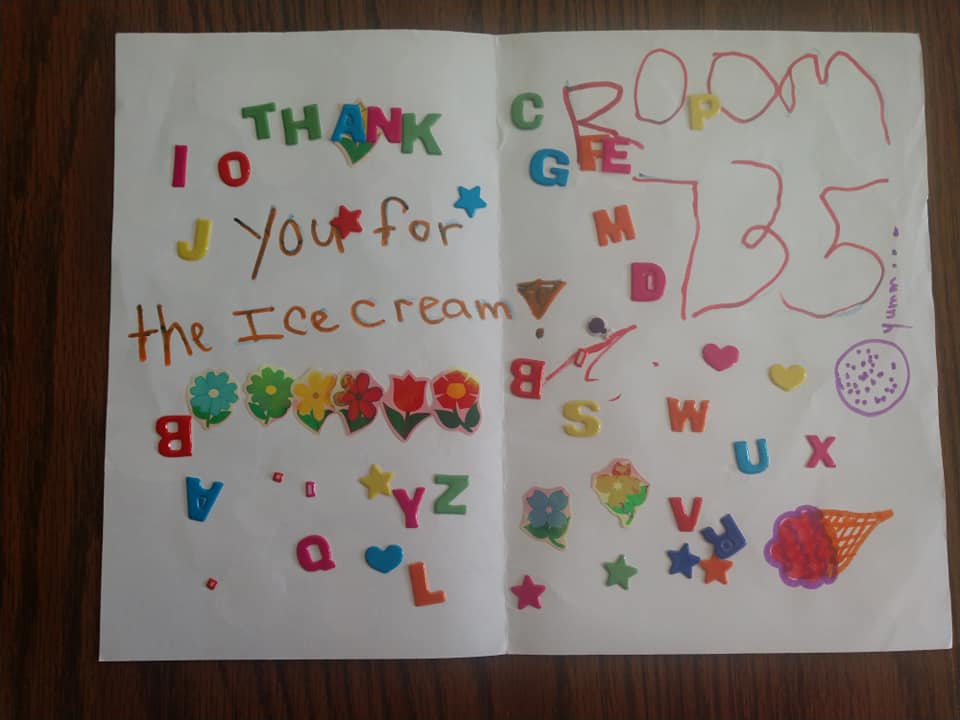 THANK
I O
J you for
the Ice cream!
B
A
Y Z
Q
L
C ROOM
P
G FE
B5
M
D
yumm...
B
S W
U X
V R